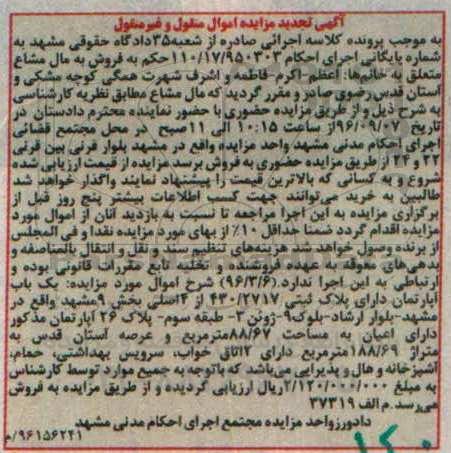 آگهی تجدید مزایده اموال منقول و غیرمنقول
به موجب پرونده کلاسه اجرائی صادره از شعبه۳۵دادگاه حقوقی مشهد به
شماره بایگانی اجرای احکام ۱۱۰/۱۷/۹۵۰۳۰۳حکم به فروش به مال مشاع
متعلق به خانم‌ها: اعظم-اکرم-فاطمه و اشرف شهرت همگی کوچه مشکی و
آستان قدس رضوی صادر و مقرر گردید که مال مشاع مطابق نظریه کارشناسی
به شرح ذیل و از طریق مزایده حضوری با حضور نماینده محترم دادستان در
تاریخ ۹۶/۰۹/۰۷از ساعت ۱۰:۱۵ الی ۱۱صبح در محل مجتمع قضائی
اجرای احکام مدنی مشهد واحد مزایده واقع در مشهد بلوار قرنی بین قرنی
۲۲ و ۲۴ از طریق مزایده حضوری به فروش برسد مزایده از قیمت ارزیابی شده
شروع و به کسانی که بالاترین قیمت را پیشنهاد نمایند واگذار خواهد شد
طالبین به خرید می‌توانند جهت کسب اطلاعات بیشتر پنج روز قبل از
برگزاری مزایده به این اجرا مراجعه تا نسبت به بازدید آنان از اموال مورد
مزایده اقدام گردد ضمنا حداقل ۱۰٪ از بهای مورد مزایده نقدا و فی المجلس
از برنده وصول خواهد شد هزینه‌های تنظیم سند و نقل و انتقال بالمناصفه و
بدهی‌های معوقه به عهده فروشنده و تخلیه تابع مقررات قانونی بوده و
ارتباطی به این اجرا ندارد.(۹۶/۳/۶) شرح اموال مورد مزایده: یک باب
آپارتمان دارای پلاک ثبتی ۴۳۰/۲۷۱۷ از ۴اصلی بخش ۹مشهد واقع در
مشهد-بلوار ارشاد-بلوک۹-ژوئن ۳- طبقه سوم- پلاک ۲۶ آپارتمان مذکور
دارای اعیان به مساحت ۸۸/۶۷مترمربع و عرصه آستان قدس به
متراژ ۱۸۸/۶۹مترمربع دارای ۲اتاق خواب، سرویس بهداشتی، حمام،
آشپزخانه و هال و پذیرایی می‌باشد که باتوجه به جمیع موارد توسط کارشناس
به مبلغ ۲/۱۲۰/۰۰۰/۰۰۰ریال ارزیابی گردیده و از طریق مزایده به فروش
می‌رسد.م الف ۳۷۳۱۹
دادورز واحد مزایده مجتمع اجرای احکام مدنی مشهد
۹۶۱۵۶۲۴۱/م